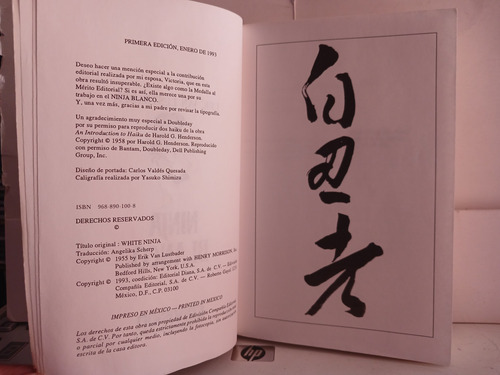 PRIMERA EDICIÓN, ENERO DE 1993
Deseo hacer una mención especial a la contribución
editorial realizada por mi esposa, Victoria, que en esta
obra resultó insuperable. ¿Existe algo como la Medalla al
Mérito Editorial? Si es así, ella merece una por su
trabajo en el NINJA BLANCO.
Y, una vez más, gracias a mi padre por revisar la tipografía.
Un agradecimiento muy especial a Doubleday
por su permiso para reproducir dos haiku de la obra
An Introduction to Haiku de Harold G. Henderson.
Copyright © 1958 por Harold G. Henderson. Reproducido
con permiso de Bantam, Doubleday, Dell Publishing
Group, Inc.
Diseño de portada: Carlos Valdés Quesada
Caligrafía realizada por Yasuko Shimizu
ISBN 968-890-100-8
DERECHOS RESERVADOS
©
Título original: WHITE NINJA
Traducción: Angelika Scherp
Copyright © 1955 by Erik Van Lustbader
Published by arrangement with HENRY MORRISON,
Bedford Hills, New York, U.S.A.
Copyright © 1993, coedición: Editorial Diana, S.A. de C.V. —
Compañía Editorial, S.A. de C.V. — Roberto
México, D.F., C.P. 03100
IMPRESO EN MÉXICO — PRINTED IN MEXICO
Los derechos de esta obra son propiedad de Edivisión Compañía Editorial,
S.A. de C.V. Por tanto, queda estrictamente prohibida la reproducción
o parcial por cualquier medio, incluyendo la fotocopia, sin
escrita de la casa editora.
白忍者
hp